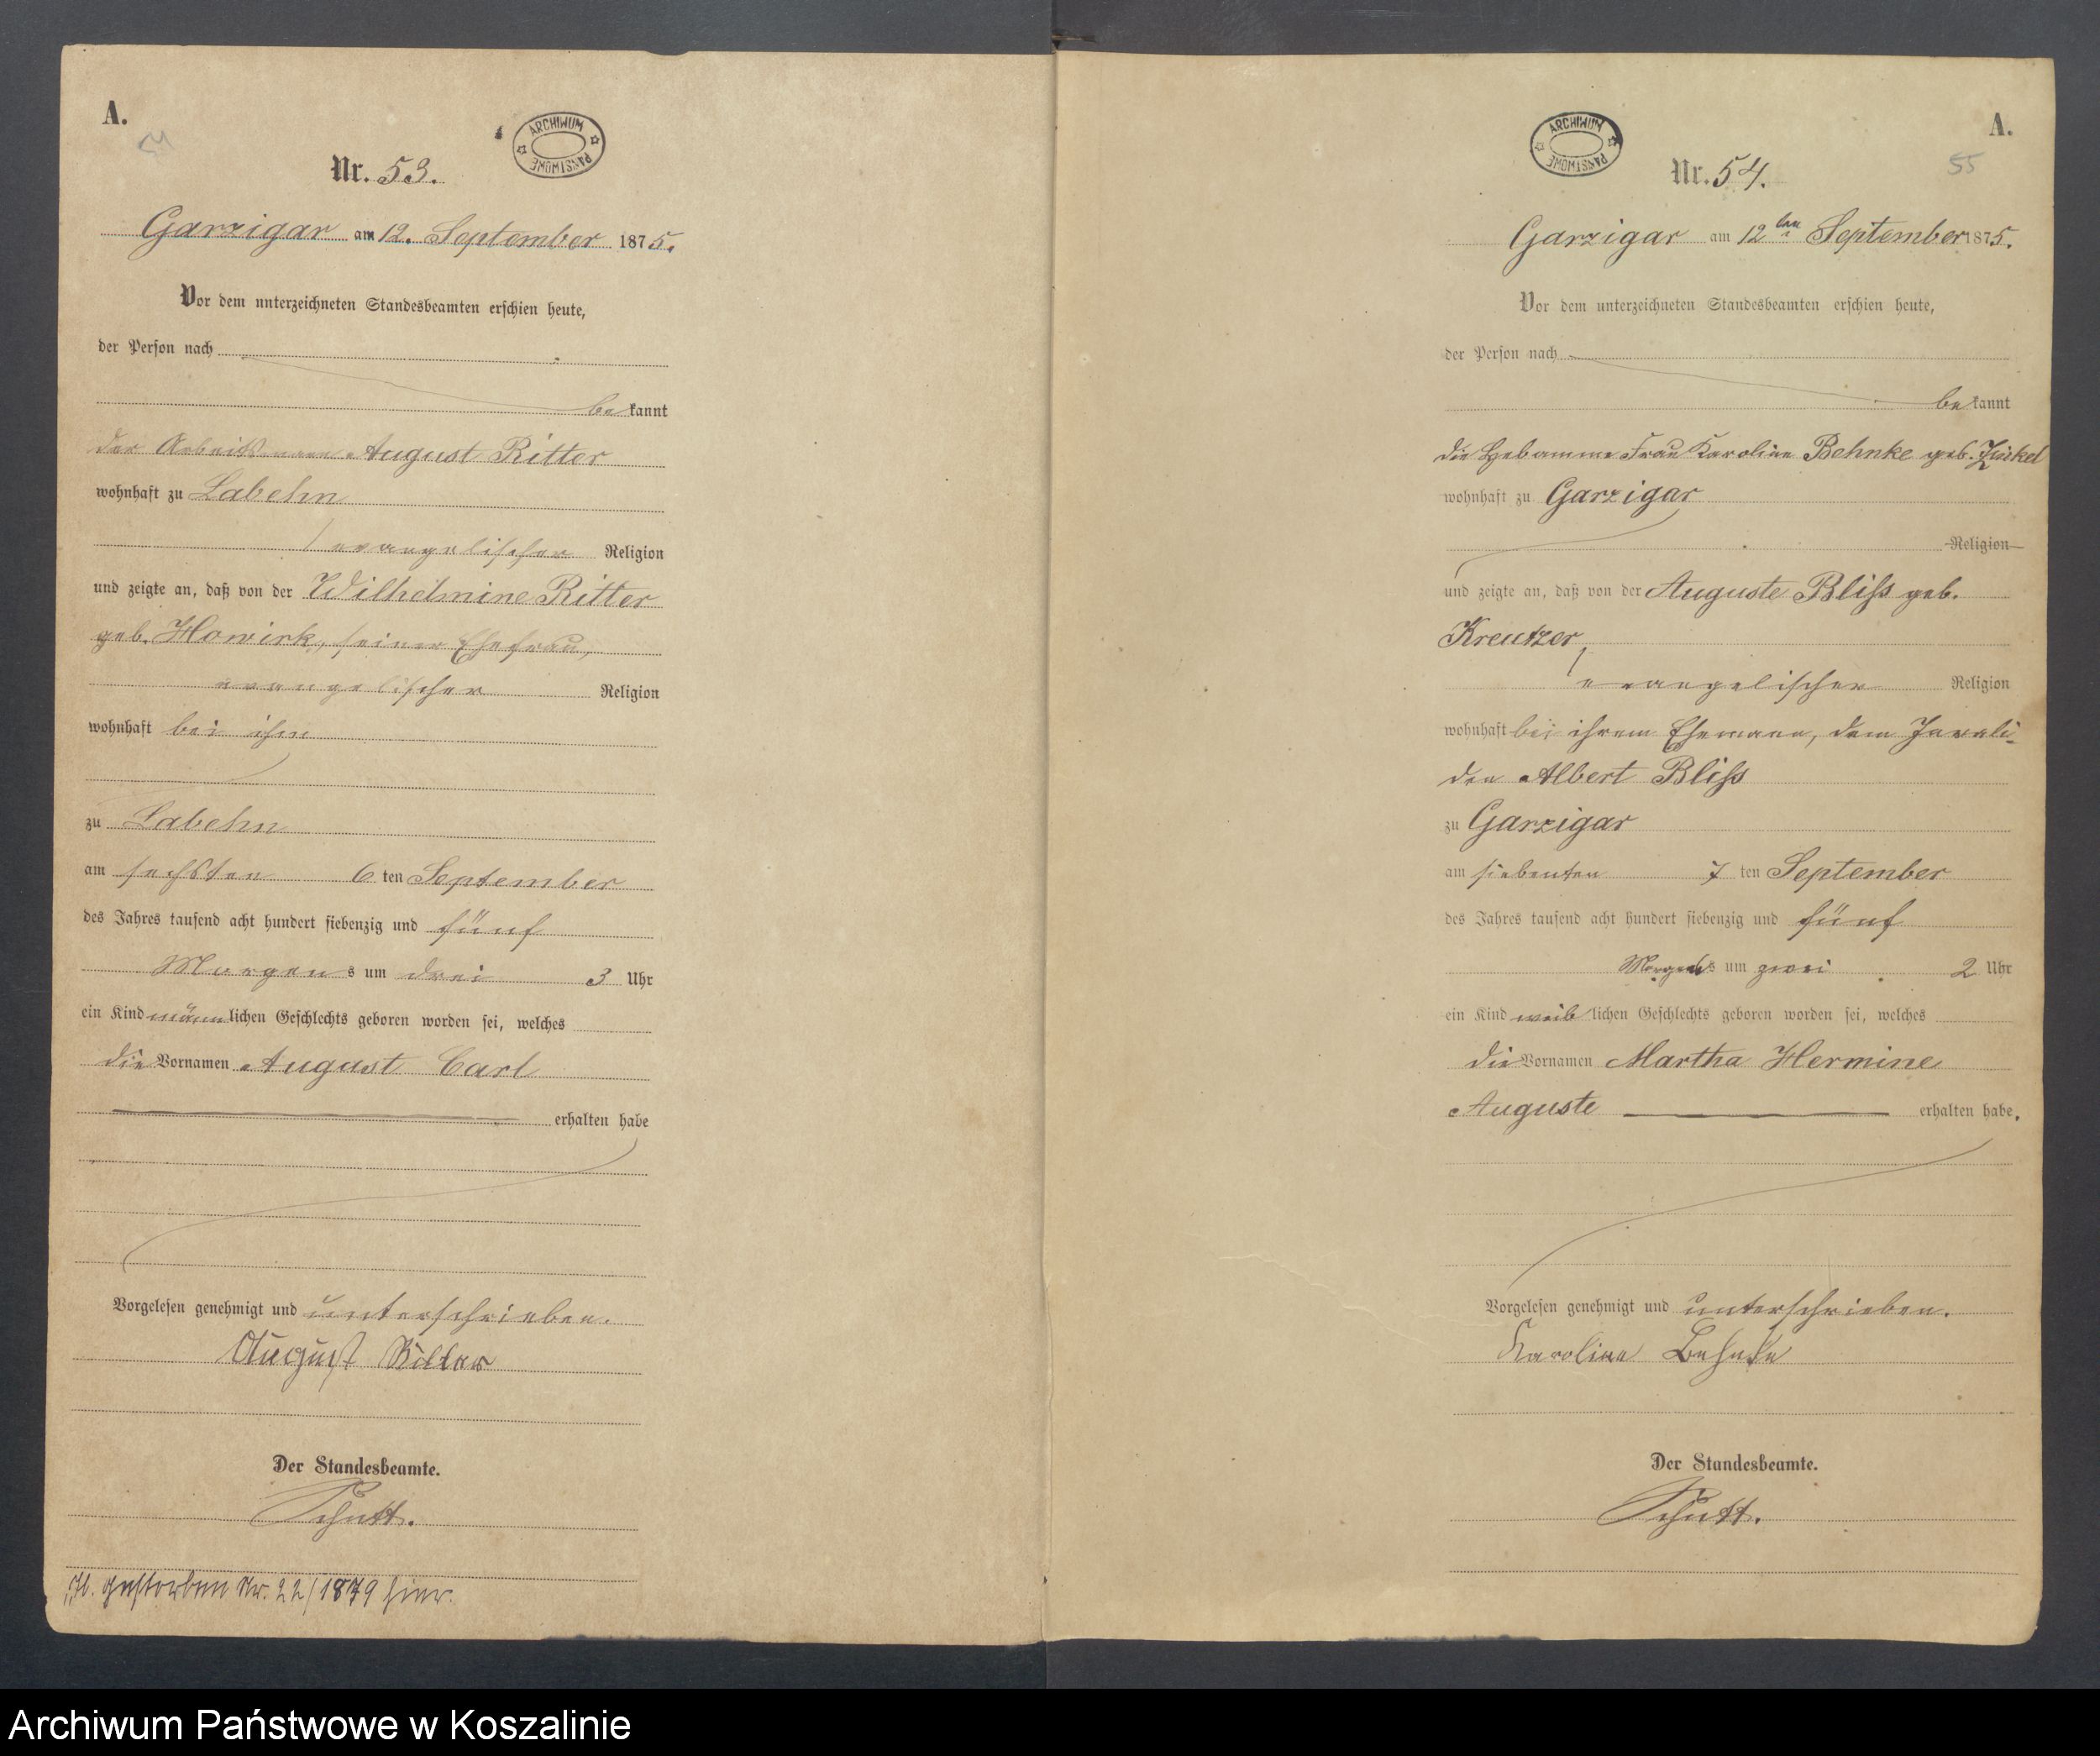 A.
ARCHIWUM PAŃSTWOWE
Nr. 53.
Garzigar am 12. September 1875.
Vor dem unterzeichneten Standesbeamten erschien heute,
der Person nach
bekannt
der Arbeitsmann August Ritter
wohnhaft zu Labehn
evangelischer Religion
und zeigte an, daß von der Wilhelmine Ritter
geb. Howirk, seiner Ehefrau,
evangelischer Religion
wohnhaft bei ihm
zu Labehn
am sechsten 6 ten September
des Jahres tausend acht hundert siebenzig und fünf
Morgens um drei 3 Uhr
ein Kind männlichen Geschlechts geboren worden sei, welches
die Vornamen August Carl
erhalten habe
Vorgelesen genehmigt und unterschrieben.
August Ritter
Der Standesbeamte.
Schutt.
gestorben Nr. 22/1879 hier.
A.
55
ARCHIWUM PAŃSTWOWE
Nr. 54.
Garzigar am 12ten September 1875.
Vor dem unterzeichneten Standesbeamten erschien heute,
der Person nach
bekannt
die Hebamme Frau Karoline Behnke geb.
wohnhaft zu Garzigar
Religion
und zeigte an, daß von der Auguste Bliss geb.
Kreutzer,
evangelischer Religion
wohnhaft bei ihrem Ehemann, dem Invali-
den Albert Bliss
zu Garzigar
am siebenten 7 ten September
des Jahres tausend acht hundert siebenzig und fünf
Morgens um zwei 2 Uhr
ein Kind weiblichen Geschlechts geboren worden sei, welches
die Vornamen Martha Hermine
Auguste erhalten habe.
Vorgelesen genehmigt und unterschrieben.
Karoline Behnke
Der Standesbeamte.
Schutt.
Archiwum Państwowe w Koszalinie